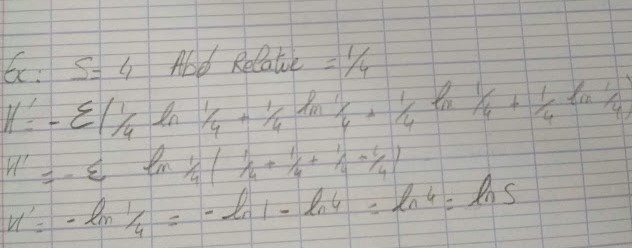 Ex: S = 4 Abd Relative = 1/4
H' = - Σ(1/4 ln 1/4 + 1/4 ln 1/4 + 1/4 ln 1/4 + 1/4 ln 1/4)
H' = - Σ ln 1/4 (1/4 + 1/4 + 1/4 + 1/4)
H' = - ln 1/4 = - ln 1 - ln 4 = ln 4 = ln S